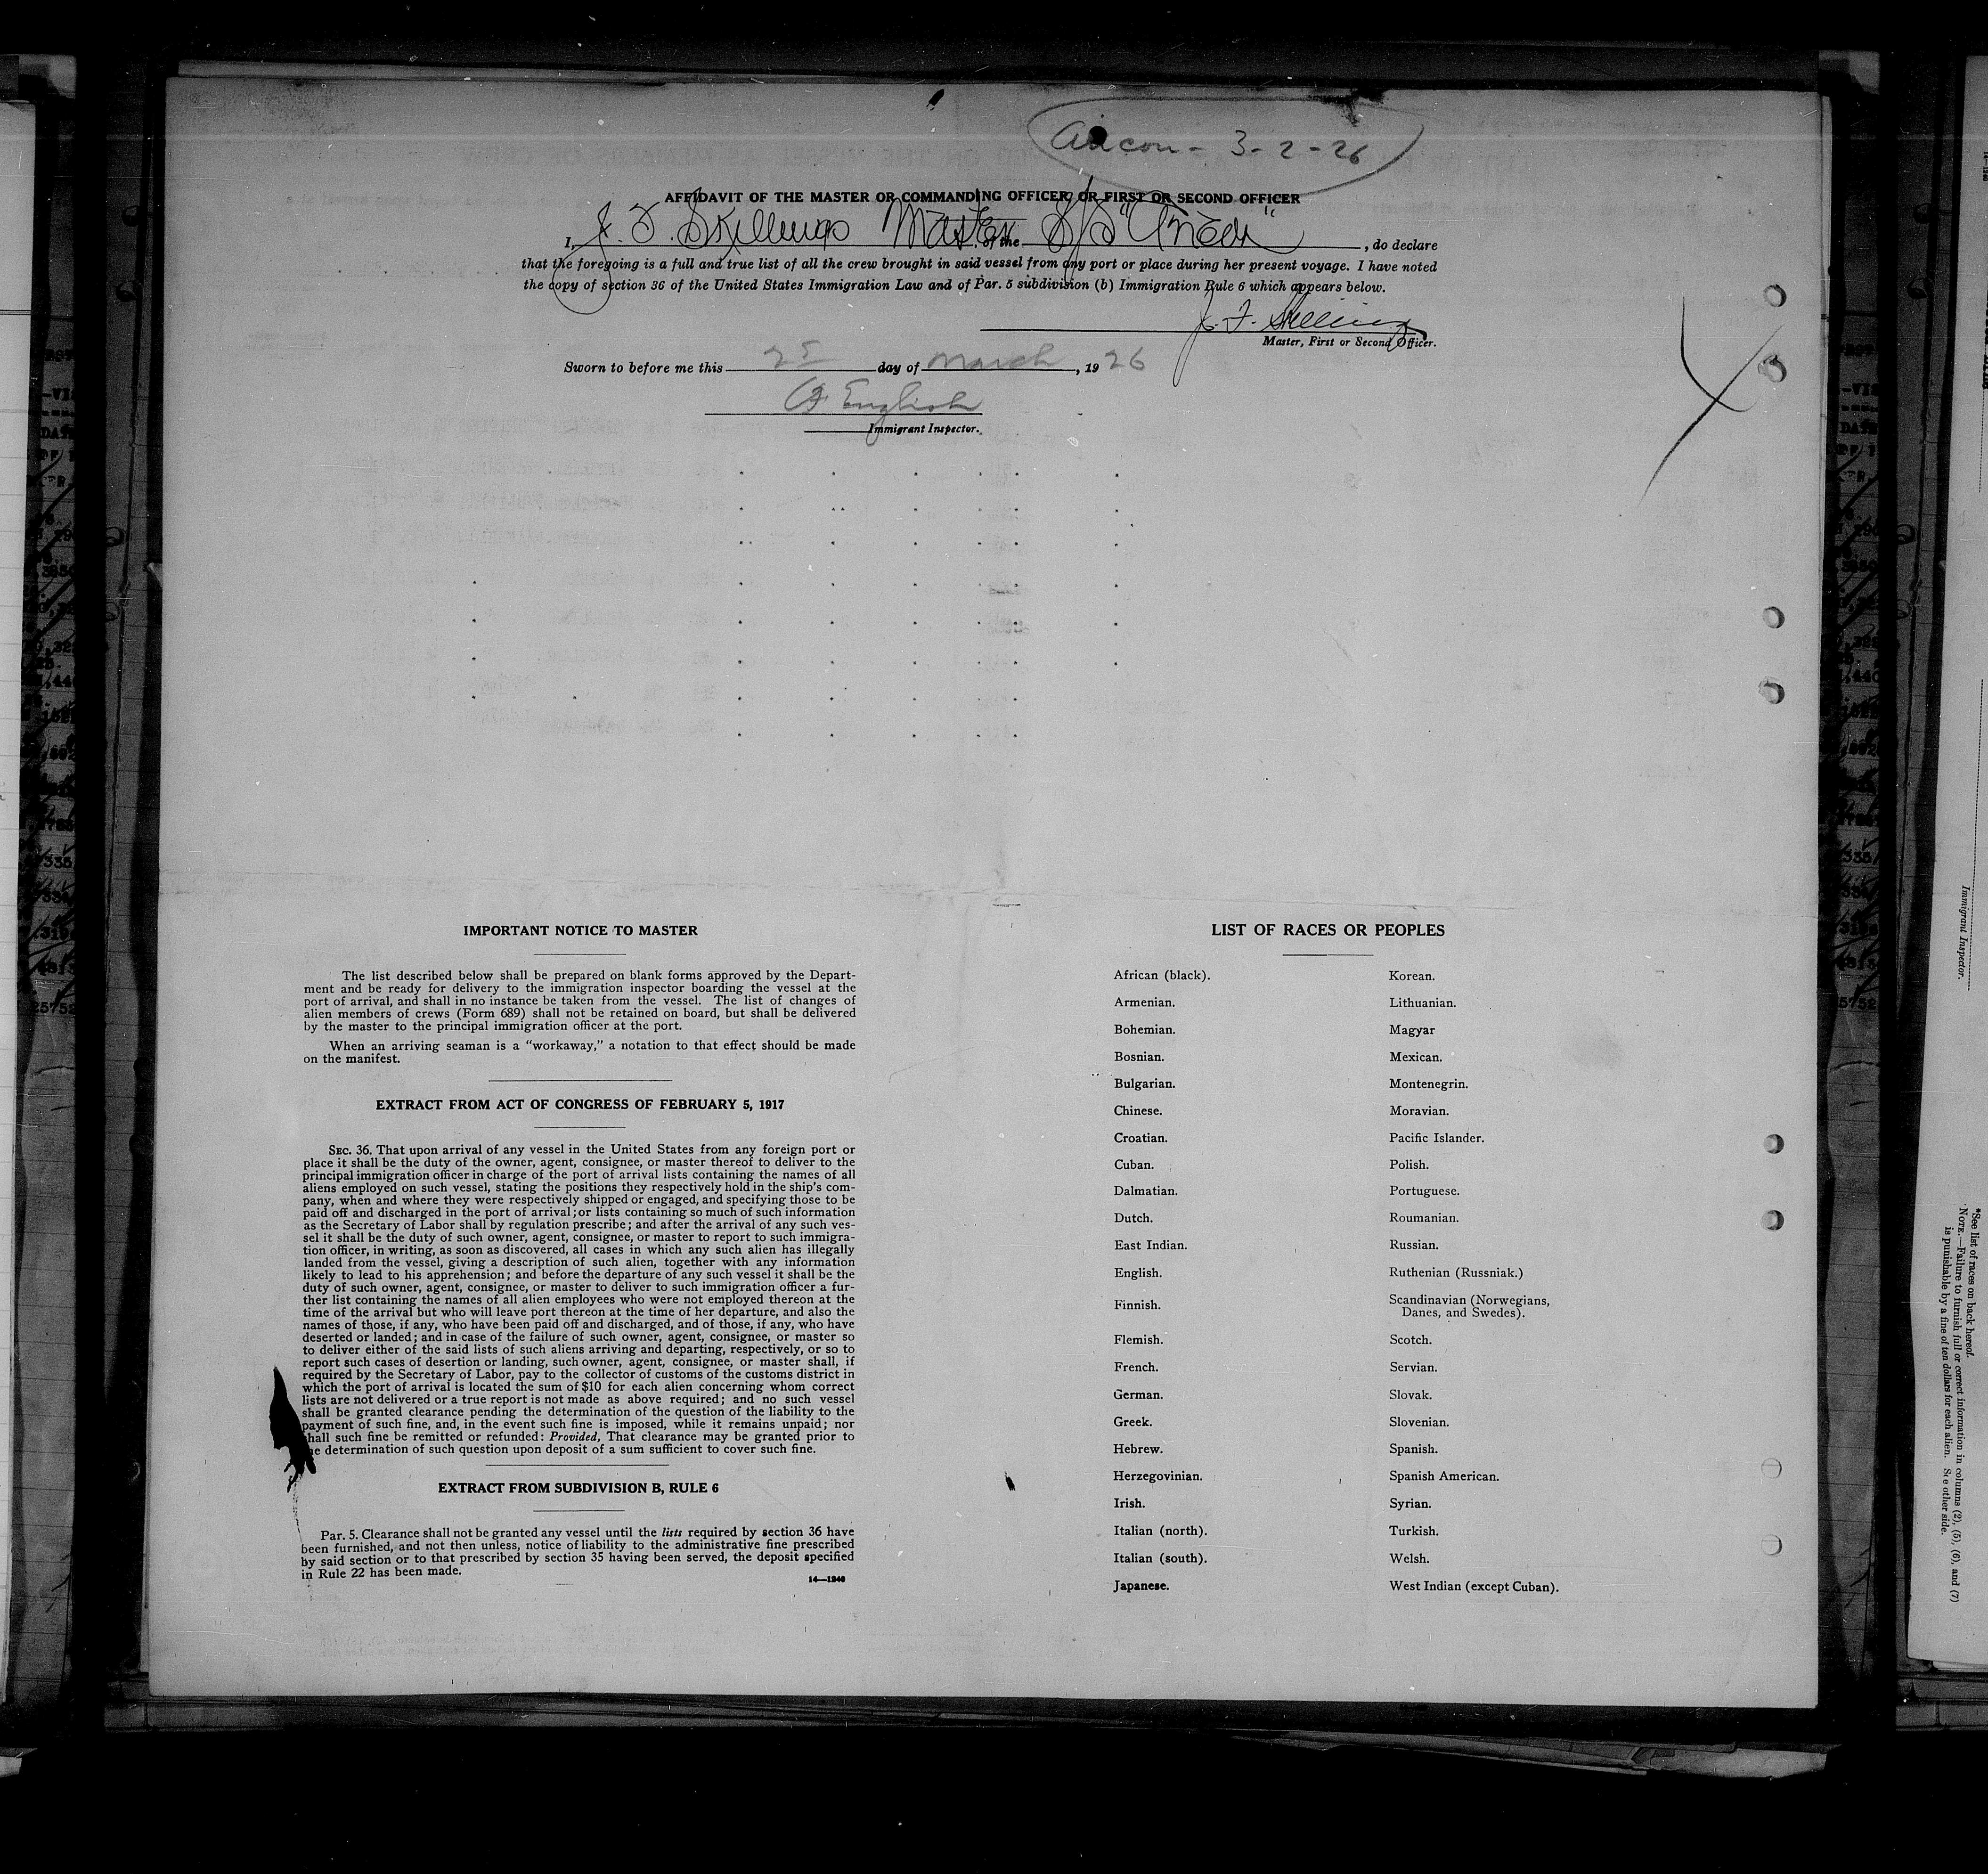 Ancon - 3-2-26
AFFIDAVIT OF THE MASTER OR COMMANDING OFFICER, OR FIRST OR SECOND OFFICER
I, J. F. Skillings Master of the S/S " , do declare
that the foregoing is a full and true list of all the crew brought in said vessel from any port or place during her present voyage. I have noted
the copy of section 36 of the United States Immigration Law and of Par. 5 subdivision (b) Immigration Rule 6 which appears below.
J. F. Skillings
Master, First or Second Officer.
Sworn to before me this day of March, 1926
English
Immigrant Inspector.
IMPORTANT NOTICE TO MASTER
The list described below shall be prepared on blank forms approved by the Depart-
ment and be ready for delivery to the immigration inspector boarding the vessel at the
port of arrival, and shall in no instance be taken from the vessel. The list of changes of
alien members of crews (Form 689) shall not be retained on board, but shall be delivered
by the master to the principal immigration officer at the port.
When an arriving seaman is a "workaway," a notation to that effect should be made
on the manifest.
EXTRACT FROM ACT OF CONGRESS OF FEBRUARY 5, 1917
SEC. 36. That upon arrival of any vessel in the United States from any foreign port or
place it shall be the duty of the owner, agent, consignee, or master thereof to deliver to the
principal immigration officer in charge of the port of arrival lists containing the names of all
aliens employed on such vessel, stating the positions they respectively hold in the ship's com-
pany, when and where they were respectively shipped or engaged, and specifying those to be
paid off and discharged in the port of arrival; or lists containing so much of such information
as the Secretary of Labor shall by regulation prescribe; and after the arrival of any such ves-
sel it shall be the duty of such owner, agent, consignee, or master to report to such immigra-
tion officer, in writing, as soon as discovered, all cases in which any such alien has illegally
landed from the vessel, giving a description of such alien, together with any information
likely to lead to his apprehension; and before the departure of any such vessel it shall be the
duty of such owner, agent, consignee, or master to deliver to such immigration officer a fur-
ther list containing the names of all alien employees who were not employed thereon at the
time of the arrival but who will leave port thereon at the time of her departure, and also the
names of those, if any, who have been paid off and discharged, and of those, if any, who have
deserted or landed; and in case of the failure of such owner, agent, consignee, or master so
to deliver either of the said lists of such aliens arriving and departing, respectively, or so to
report such cases of desertion or landing, such owner, agent, consignee, or master shall, if
required by the Secretary of Labor, pay to the collector of customs of the customs district in
which the port of arrival is located the sum of $10 for each alien concerning whom correct
lists are not delivered or a true report is not made as above required; and no such vessel
shall be granted clearance pending the determination of the question of the liability to the
payment of such fine, and, in the event such fine is imposed, while it remains unpaid; nor
shall such fine be remitted or refunded: Provided, That clearance may be granted prior to
the determination of such question upon deposit of a sum sufficient to cover such fine.
EXTRACT FROM SUBDIVISION B, RULE 6
Par. 5. Clearance shall not be granted any vessel until the lists required by section 36 have
been furnished, and not then unless, notice of liability to the administrative fine prescribed
by said section or to that prescribed by section 35 having been served, the deposit specified
in Rule 22 has been made.
14—1240
LIST OF RACES OR PEOPLES
African (black).
Armenian.
Bohemian.
Bosnian.
Bulgarian.
Chinese.
Croatian.
Cuban.
Dalmatian.
Dutch.
East Indian.
English.
Finnish.
Flemish.
French.
German.
Greek.
Hebrew.
Herzegovinian.
Irish.
Italian (north).
Italian (south).
Japanese.
Korean.
Lithuanian.
Magyar
Mexican.
Montenegrin.
Moravian.
Pacific Islander.
Polish.
Portuguese.
Roumanian.
Russian.
Ruthenian (Russniak.)
Scandinavian (Norwegians,
Danes, and Swedes).
Scotch.
Servian.
Slovak.
Slovenian.
Spanish.
Spanish American.
Syrian.
Turkish.
Welsh.
West Indian (except Cuban).
Immigrant Inspector.
*See list of races on back hereof.
NOTE.—Failure to furnish full or correct information in columns (2), (5), (6), and (7)
is punishable by a fine of ten dollars for each alien. See other side.